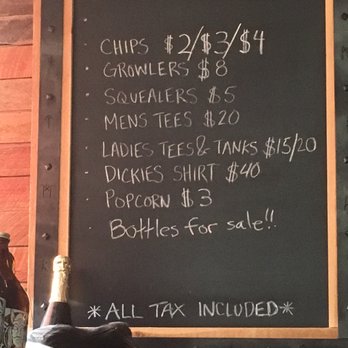 · CHIPS $2/$3/$4
· GROWLERS $8
· SQUEALERS $5
· MENS TEES $20
· LADIES TEES & TANKS $15/20
· DICKIES SHIRT $40
· POPCORN $3
· Bottles for sale!!
*ALL TAX INCLUDED*